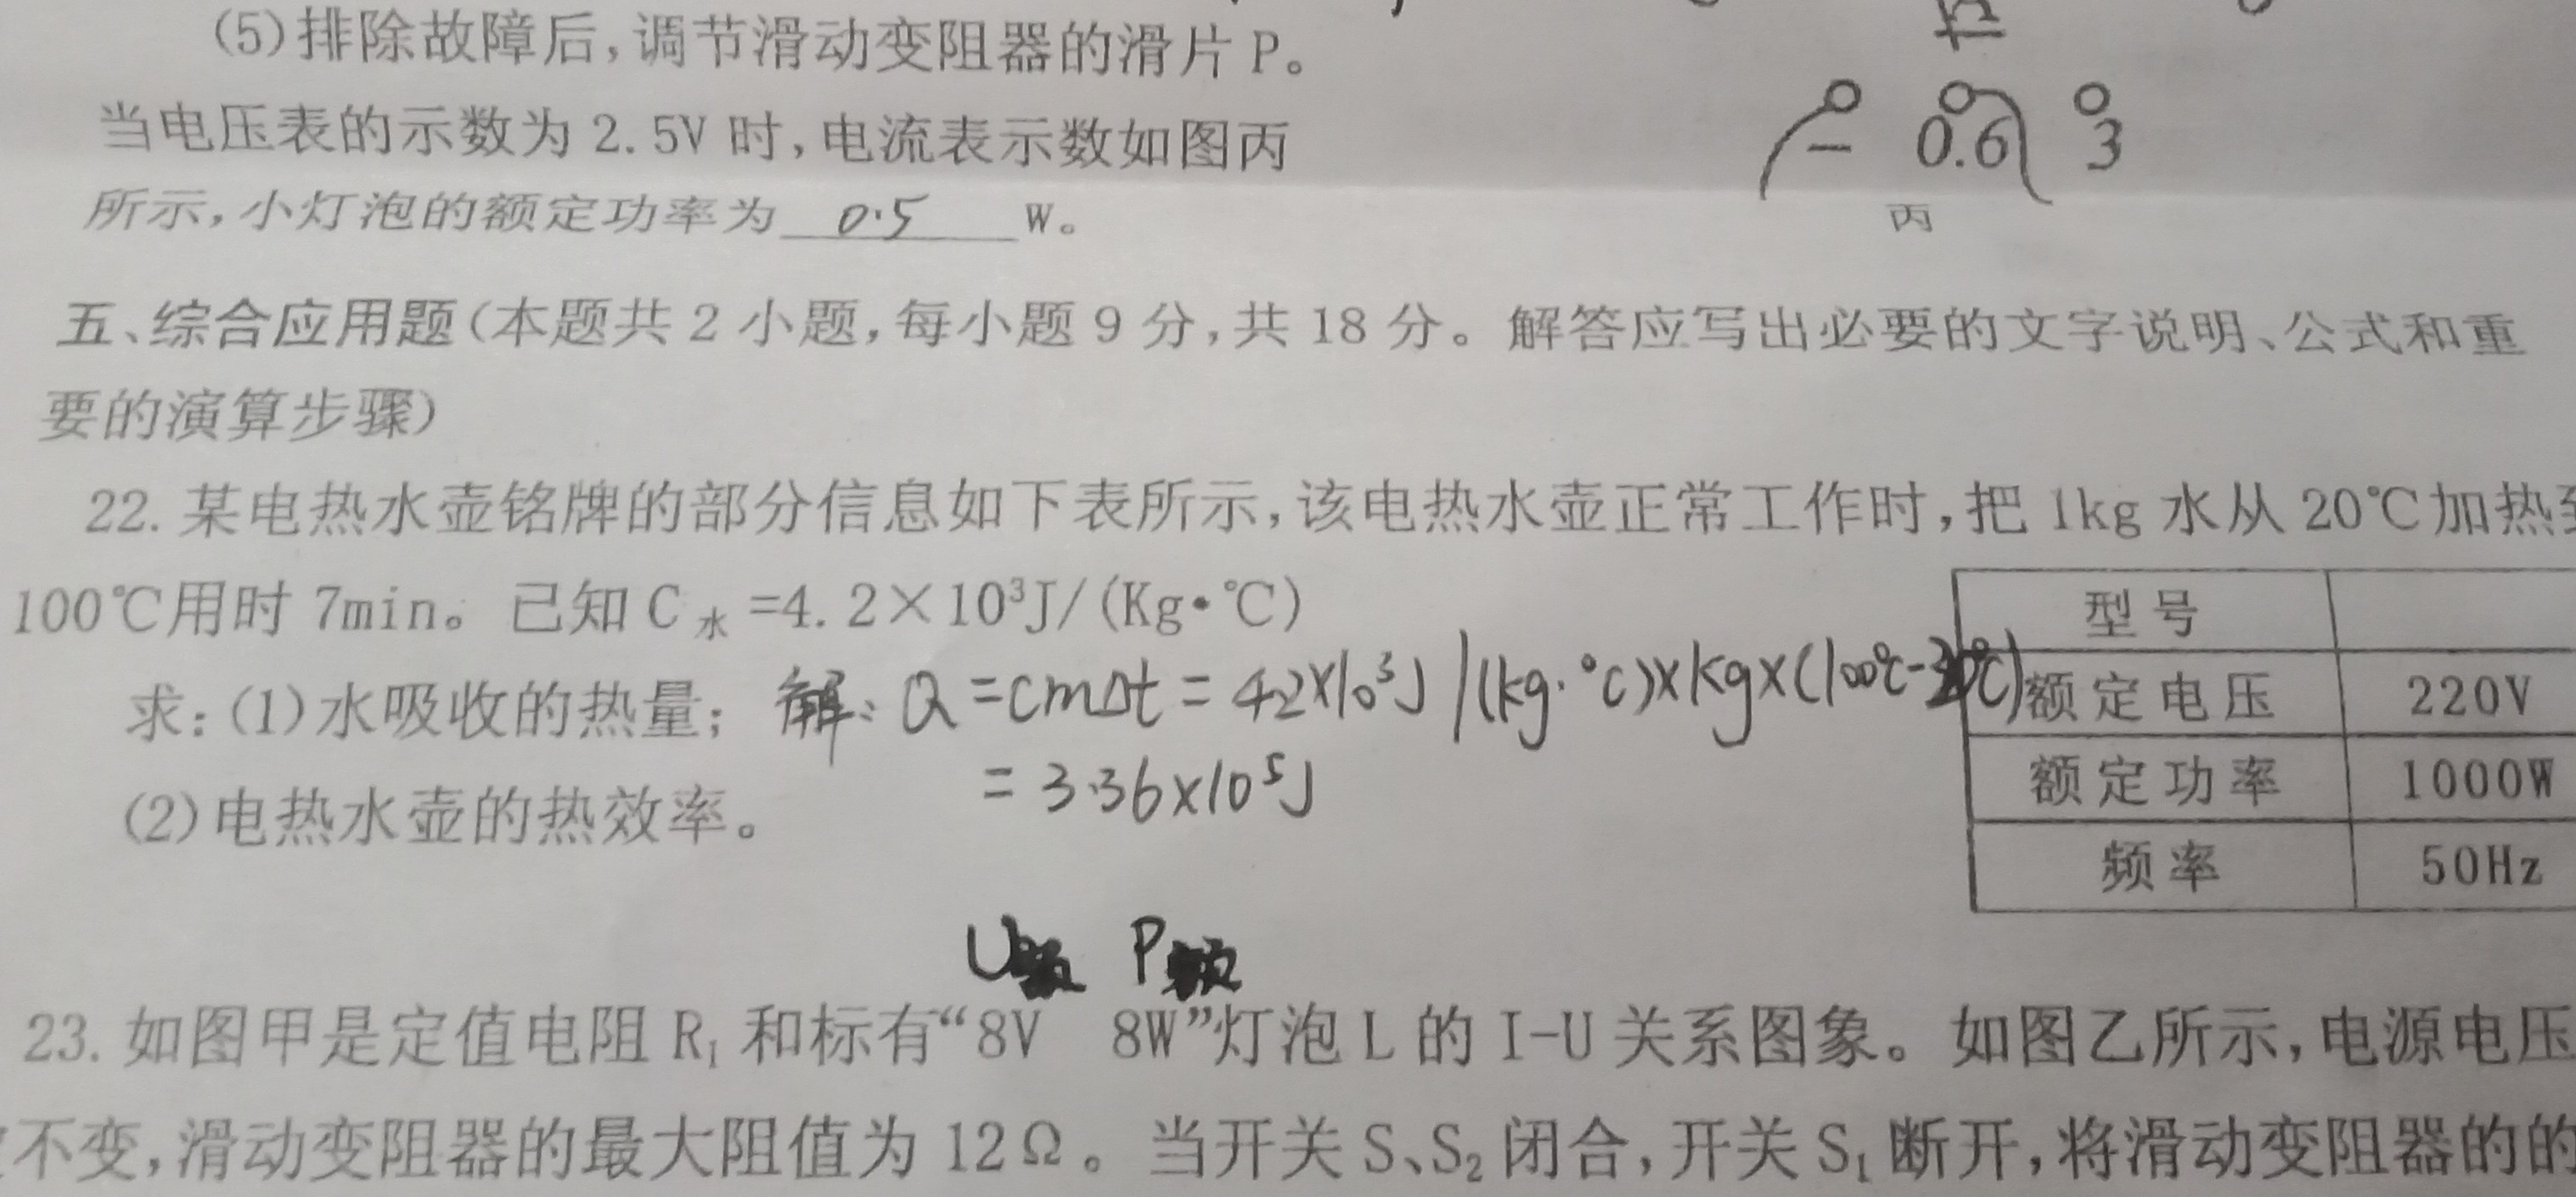 (5)排除故障后,调节滑动变阻器的滑片 P。
当电压表的示数为 2.5V 时,电流表示数如图丙
所示,小灯泡的额定功率为 0.5 W。
- 0.6 3
丙
五、综合应用题(本题共 2 小题,每小题 9 分,共 18 分。解答应写出必要的文字说明、公式和重
要的演算步骤)
22. 某电热水壶铭牌的部分信息如下表所示,该电热水壶正常工作时,把 1kg 水从 20℃加热
100℃用时 7min。已知 C水=4.2×10³J/(Kg·℃)
求:(1)水吸收的热量;
解: Q=cmΔt=4.2×10³J/(kg·℃)×1kg×(100℃-20℃)
=3.36×10⁵J
(2)电热水壶的热效率。
型号
额定电压 220V
额定功率 1000W
频率 50Hz
U额 P额
23. 如图甲是定值电阻 R₁ 和标有“8V 8W”灯泡 L 的 I-U 关系图象。如图乙所示,电源电压
不变,滑动变阻器的最大阻值为 12Ω。当开关 S、S₂ 闭合,开关 S₁ 断开,将滑动变阻器的的